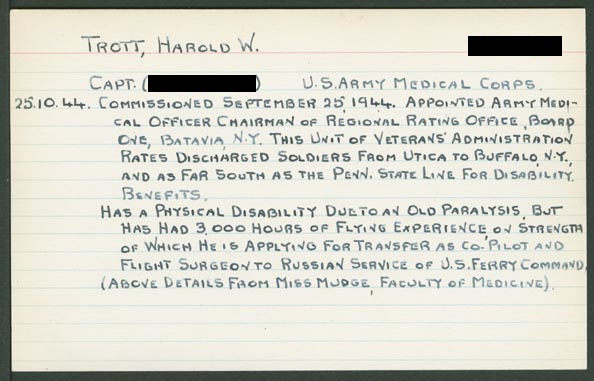 TROTT, HAROLD W.
CAPT. ( ) U.S. ARMY MEDICAL CORPS.
25.10.44. COMMISSIONED SEPTEMBER 25, 1944. APPOINTED ARMY MEDI-
CAL OFFICER CHAIRMAN OF REGIONAL RATING OFFICE, BOARD
ONE, BATAVIA, N.Y. THIS UNIT OF VETERANS' ADMINISTRATION
RATES DISCHARGED SOLDIERS FROM UTICA TO BUFFALO, N.Y.,
AND AS FAR SOUTH AS THE PENN. STATE LINE FOR DISABILITY
BENEFITS.
HAS A PHYSICAL DISABILITY DUE TO AN OLD PARALYSIS, BUT
HAS HAD 3,000 HOURS OF FLYING EXPERIENCE, ON STRENGTH
OF WHICH HE IS APPLYING FOR TRANSFER AS CO-PILOT AND
FLIGHT SURGEON TO RUSSIAN SERVICE OF U.S. FERRY COMMAND.
(ABOVE DETAILS FROM MISS MUDGE, FACULTY OF MEDICINE).